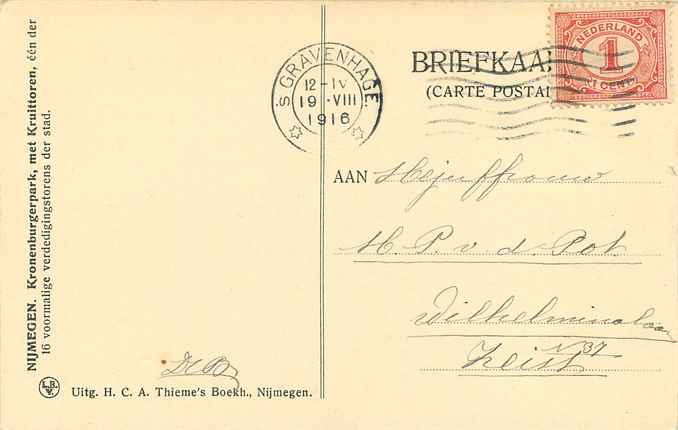 NIJMEGEN. Kronenburgerpark, met Kruittoren, één der
16 voormalige verdedigingstorens der stad.
L.B.
V.
Uitg. H. C. A. Thieme's Boekh., Nijmegen.
'S GRAVENHAGE.
12-IV
19 .VIII
1916
BRIEFKAA
(CARTE POSTA
NEDERLAND
1
1 CENT
AAN Mejuffrouw
H. P. v. d. Pot
Wilhelminalaan
N 37
Zeist